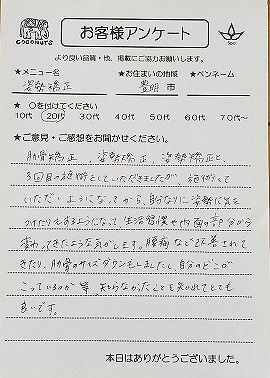 COCONUTS
お客様アンケート
spa
より良い品質・他、掲載にご協力お願いします。
★メニュー名 ★お住まいの地域 ★ペンネーム
姿勢矯正 豊明 市
★ ○を付けてください
10代 20代 30代 40代 50代 60代 70代～
★ご意見・ご感想をお聞かせください。
肋骨矯正、姿勢矯正、姿勢矯正と
3回目の施術をしていただきましたが、施術して
いただくようになってから、自分なりに姿勢に気を
つけたりもするようになって生活習慣や内面の部分から
変わってきたような気がします。腰痛なども改善されて
きたり、肋骨のサイズダウンもしましたし、自分のどこが
こっているのか等、知らなかったことを知れてとても
良いです。
本日はありがとうございました。